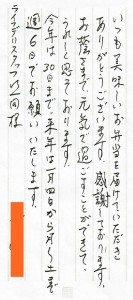 いつも美味しいお弁当を届けていただき
ありがとうございます。感謝しております。
お蔭さまで、元気で過ごすことができて、
うれしく思っております。
今年は、30日まで、来年は一月四日から月〜土まで
週6日でお願いいたします。
ライフデリスタッフ一同様